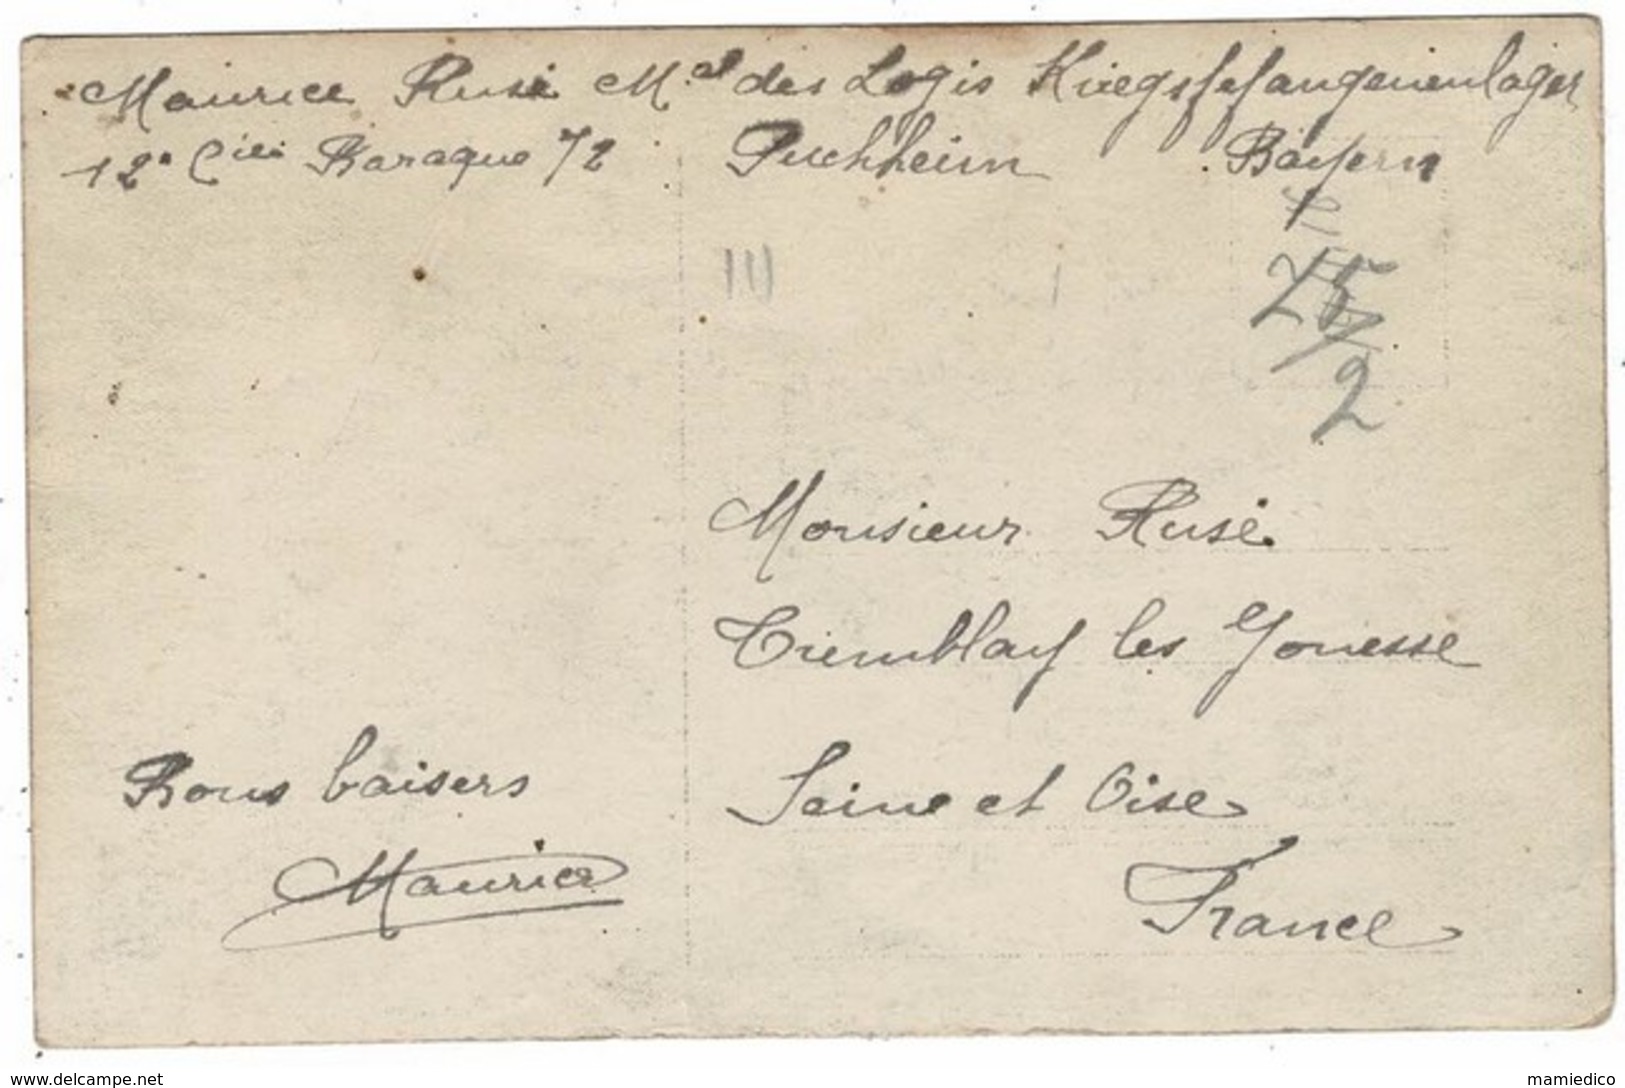 Maurice Rusé Mal des Logis Kriegsgefangenenlager
12e Cie Baraque 72 Puchheim Bayern
25/2
Monsieur Rusé
Tremblay les Gonesse
Seine et Oise
France
Bons baisers
Maurice
www.delcampe.net
mamiedico